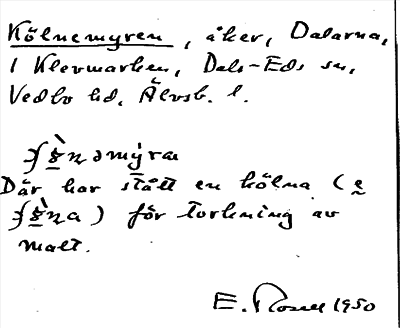 Kölnemyren, åker, Dalarna,
i Klevmarken, Dals-Eds sn,
Vedbo hd, Älvsb. l.
Där har stått en kölna (e
) för torkning av
malt.
E. 1950